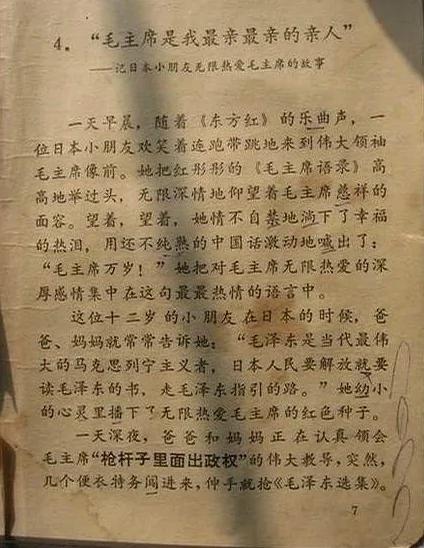 4. “毛主席是我最亲最亲的亲人”
——记日本小朋友无限热爱毛主席的故事
一天早晨，随着《东方红》的乐曲声，一
位日本小朋友欢笑着连跑带跳地来到伟大领袖
毛主席像前。她把红彤彤的《毛主席语录》高
高地举过头，无限深情地仰望着毛主席慈祥的
面容。望着，望着，她情不自禁地淌下了幸福
的热泪，用还不纯熟的中国话激动地喊出了：
“毛主席万岁！”她把对毛主席无限热爱的深
厚感情集中在这句最最热情的语言中。
这位十二岁的小朋友在日本的时候，爸
爸、妈妈就常常告诉她：“毛泽东是当代最伟
大的马克思列宁主义者，日本人民要解放就要
读毛泽东的书，走毛泽东指引的路。”她幼小
的心灵里播下了无限热爱毛主席的红色种子。
一天深夜，爸爸和妈妈正在认真领会
毛主席“枪杆子里面出政权”的伟大教导，突然，
几个便衣特务闯进来，伸手就抢《毛泽东选集》。
7